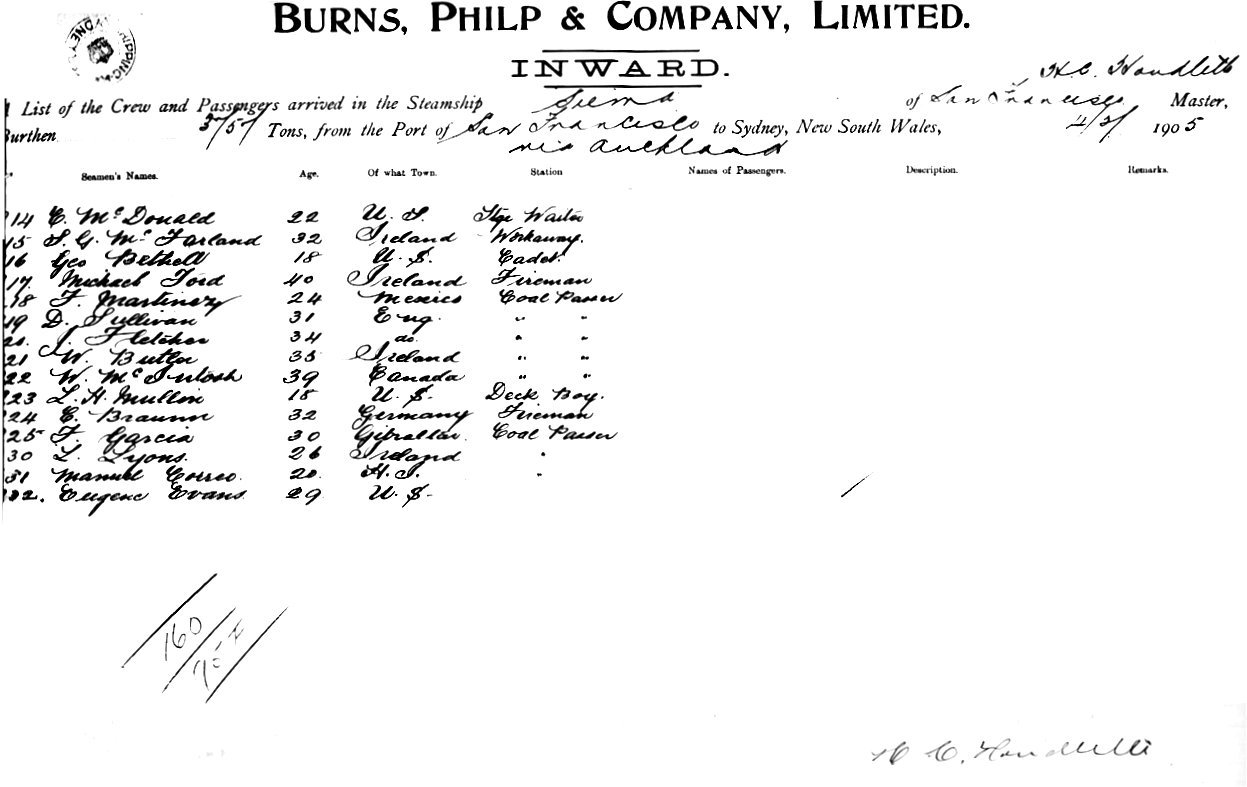 BURNS, PHILP & COMPANY, LIMITED.
INWARD.
H.C. Houdlett
List of the Crew and Passengers arrived in the Steamship Sierra of San Francisco Master,
Burthen 3/57 Tons, from the Port of San Francisco to Sydney, New South Wales, 4/2/ 1905
via Auckland
Seamen's Names. Age. Of what Town. Station Names of Passengers. Description. Remarks.
14 E. McDonald 22 U.S. Stge Waiter
15 S.G. McFarland 32 Ireland Workaway.
16 Geo Bethell 18 U.S. Cadet
17. Michael Ford 40 Ireland Fireman
18 F. Martinez 24 Mexico Coal Passer
19 D. Sullivan 31 Eng. " "
20. J. Fletcher 34 do. " "
21 W. Butler 35 Ireland " "
22 W. McIntosh 39 Canada " "
23 L.H. Mullin 18 U.S. Deck Boy.
24 E. Braunn 32 Germany Fireman
25 F. Garcia 30 Gibraltar. Coal Passer
30 L. Lyons. 26 Ireland "
31 Manuel Correo. 20. H.I. "
32. Eugene Evans. 29 U.S.
160
H.C. Houdlett